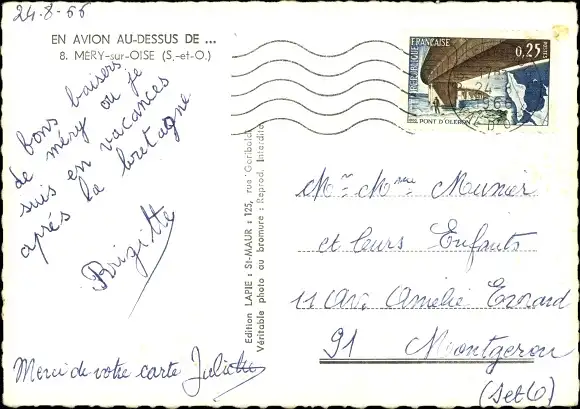 24-8-66
EN AVION AU-DESSUS DE ...
8. MÉRY-sur-OISE (S.-et-O.)
bons baisers
de méry ou je
suis en vacances
aprés la bretagne
Brigitte
Merci de votre carte Juliette
Edition LAPIE : St-MAUR : 125, rue Garibaldi
Véritable photo au bromure : Reprod. Interdite
REPUBLIQUE FRANÇAISE
0,25
PONT D'OLERON
24
1966
Mr Mme Munier
et leurs Enfants
11 Av. Amélie Evrard
91 Montgeron
(S et O)